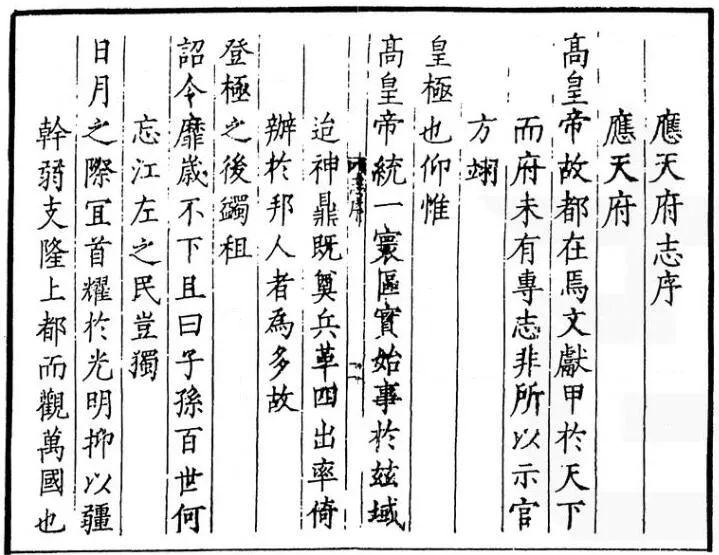 應天府志序
應天府
高皇帝故都在焉文獻甲於天下
而府未有專志非所以示官
方翊
皇極也仰惟
高皇帝統一寰區實始事於茲域
迨神鼎既奠兵革四出率倚
辦於邦人者為多故
登極之後蠲租
詔令靡歲不下且曰子孫百世何
忘江左之民豈獨
日月之際宜首耀於光明抑以疆
幹弱支隆上都而觀萬國也